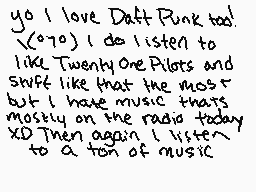 yo I love Daft Punk too!
\(^o7o) I do listen to
like Twenty One Pilots and
stuff like that the most
but I hate music thats
mostly on the radio today
XD Then again I listen
to a ton of music